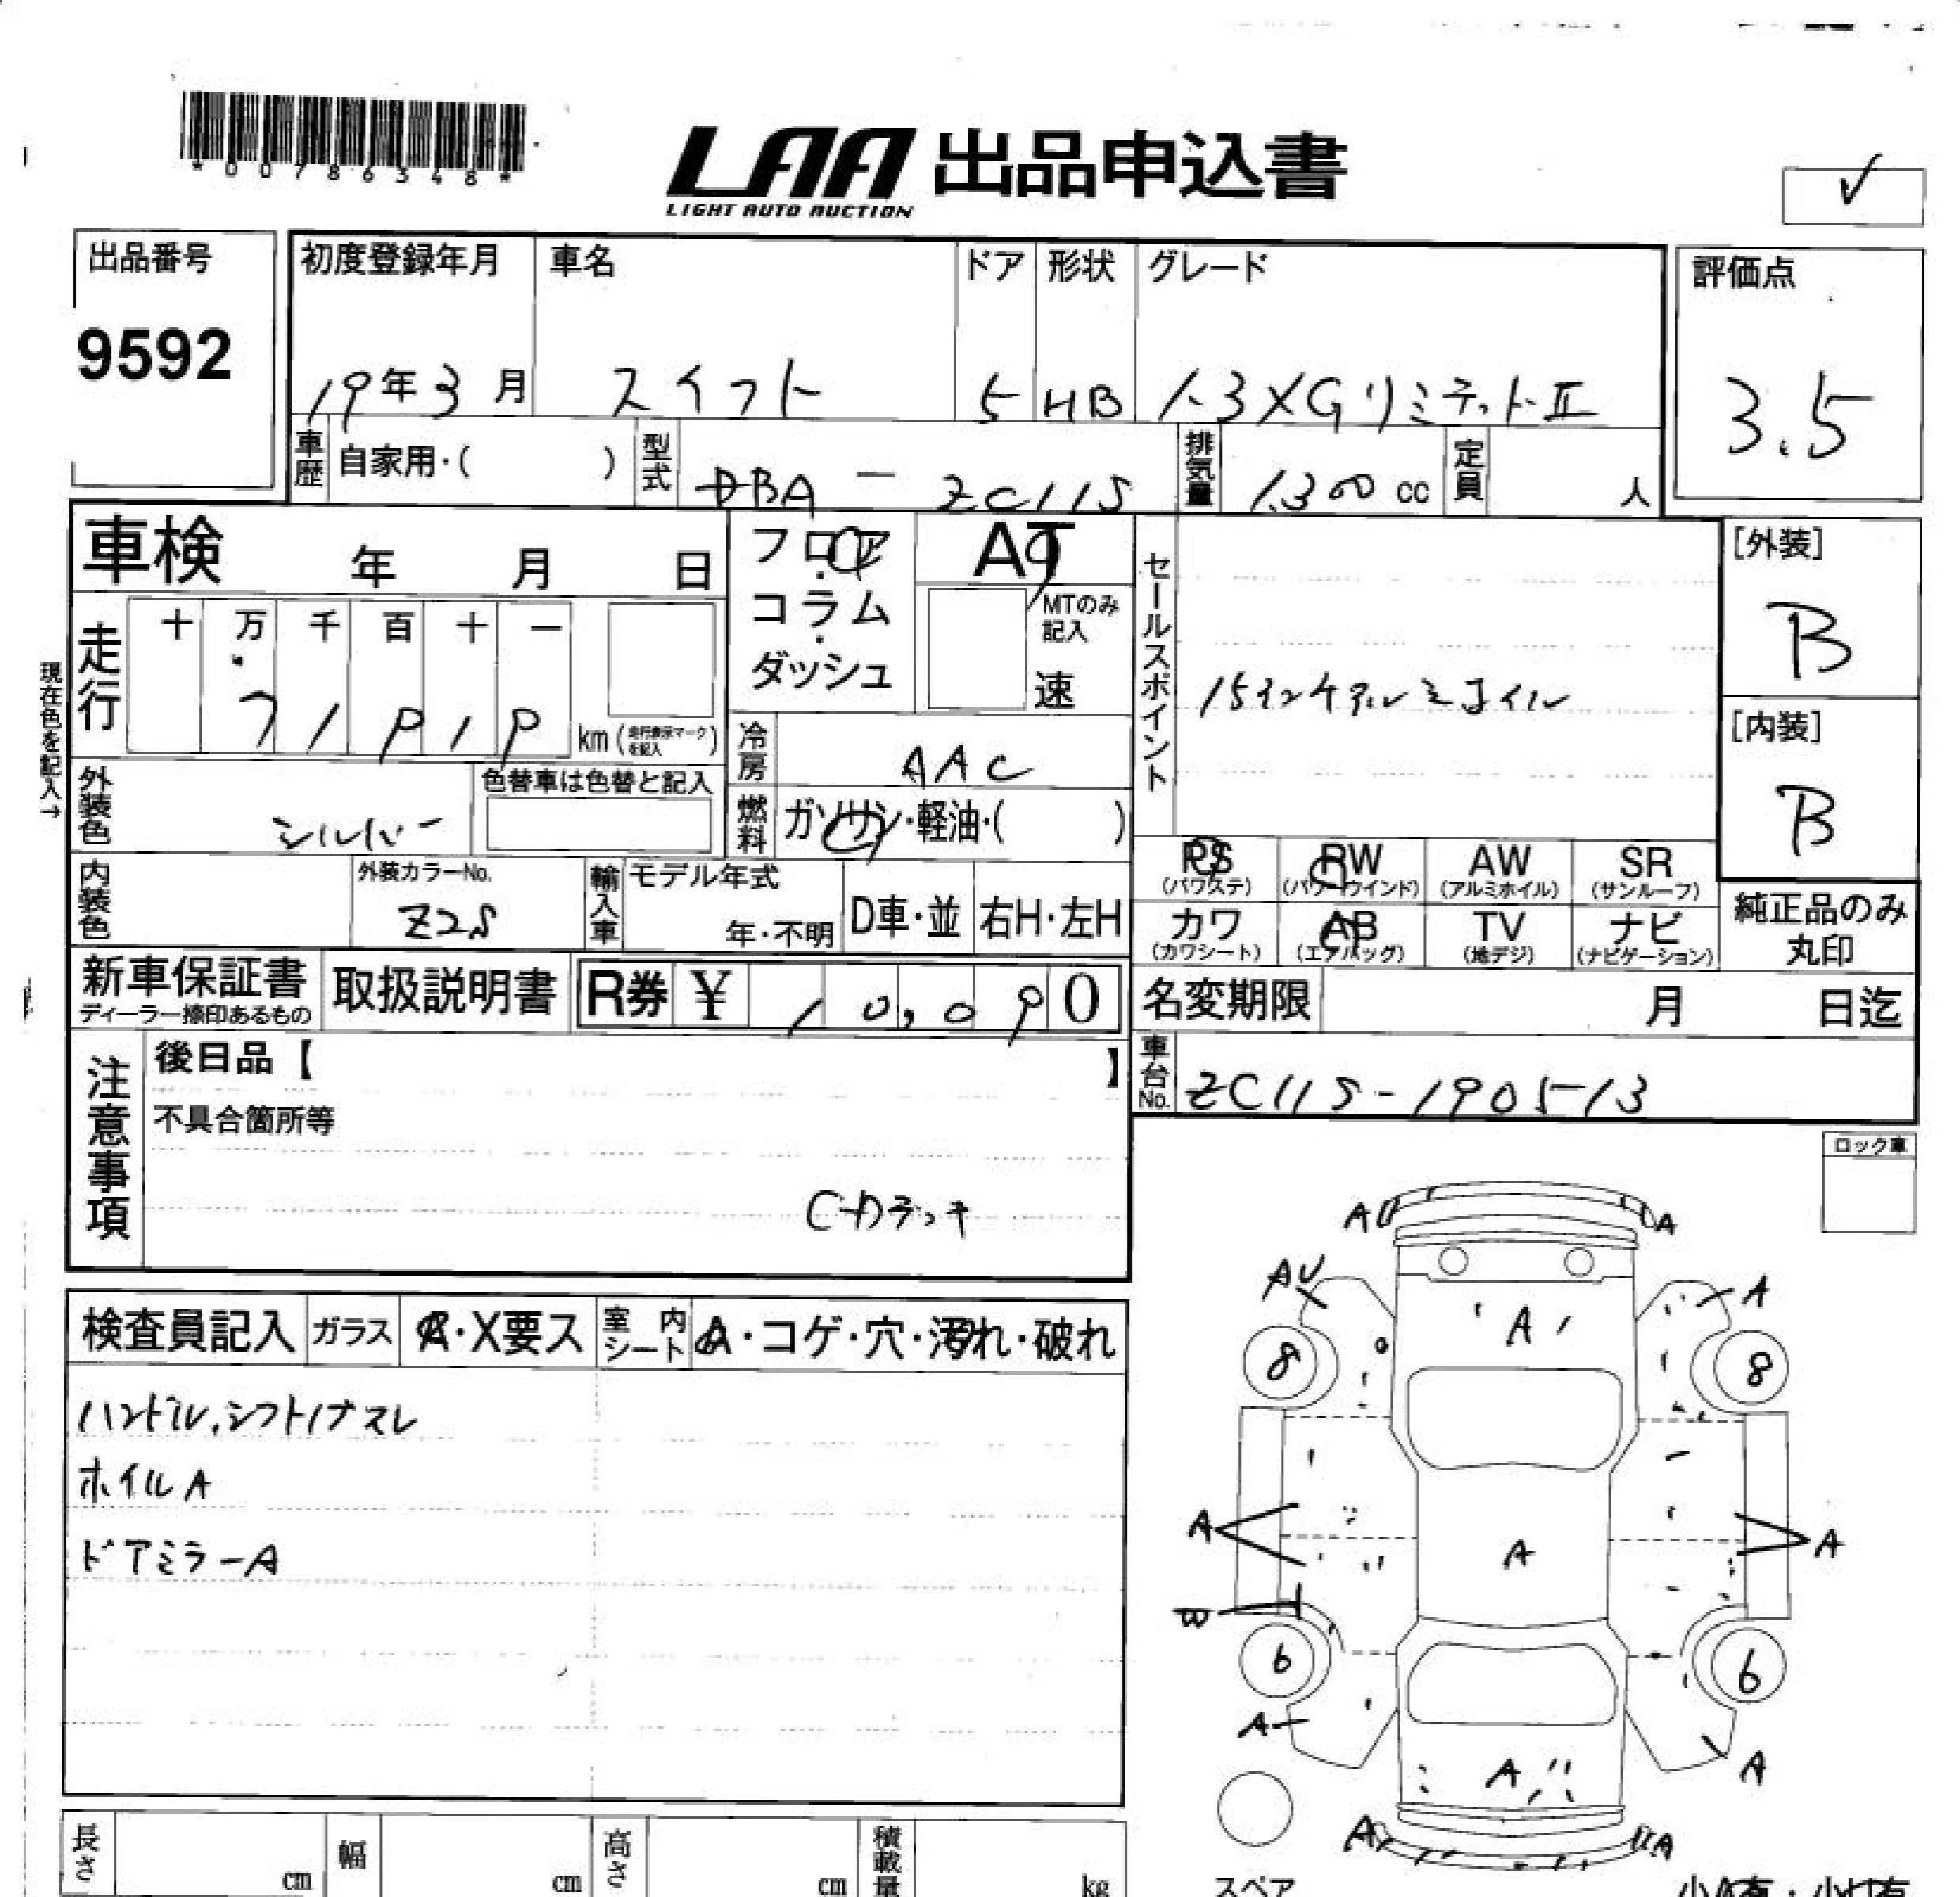 *00786348*
LAA 出品申込書
LIGHT AUTO AUCTION
✓
出品番号
9592
初度登録年月
19年3月
車名
スイフト
ドア
5
形状
HB
グレード
1.3XGリミテットⅡ
評価点
3.5
車歴 自家用・( )
型式 DBA - ZC11S
排気量 1300 cc
定員 人
車検 年 月 日
フロア・コラム・ダッシュ
AT
MTのみ記入
速
セールスポイント
15インチアルミホイル
[外装]
B
[内装]
B
現在色を記入→
走行
十 万 千 百 十 一
km (走行表示マークを記入)
冷房 AAC
外装色 シルバー
色替車は色替と記入
燃料 ガソリン・軽油・( )
内装色
外装カラーNo.
Z2S
輸入車
モデル年式
年・不明
D車・並
右H・左H
PS
(パワステ)
PW
(パワーウインド)
AW
(アルミホイル)
SR
(サンルーフ)
カワ
(カワシート)
AB
(エアバッグ)
TV
(地デジ)
ナビ
(ナビゲーション)
純正品のみ
丸印
新車保証書
ディーラー捺印あるもの
取扱説明書
R券 ¥ 10,090
名変期限 月 日迄
車台No. ZC11S-190513
注意事項
後日品【 】
不具合箇所等
CDラッキ
ロック車
検査員記入
ガラス
A・X要ス
室内シート
A・コゲ・穴・汚れ・破れ
ハンドル,シフトノブスレ
ホイルA
ドアミラーA
A A
AU A
A
8 8
A A A
W
6 6
A A
A
A A
長さ cm
幅 cm
高さ cm
積載量 kg
スペア
小A有・小U有